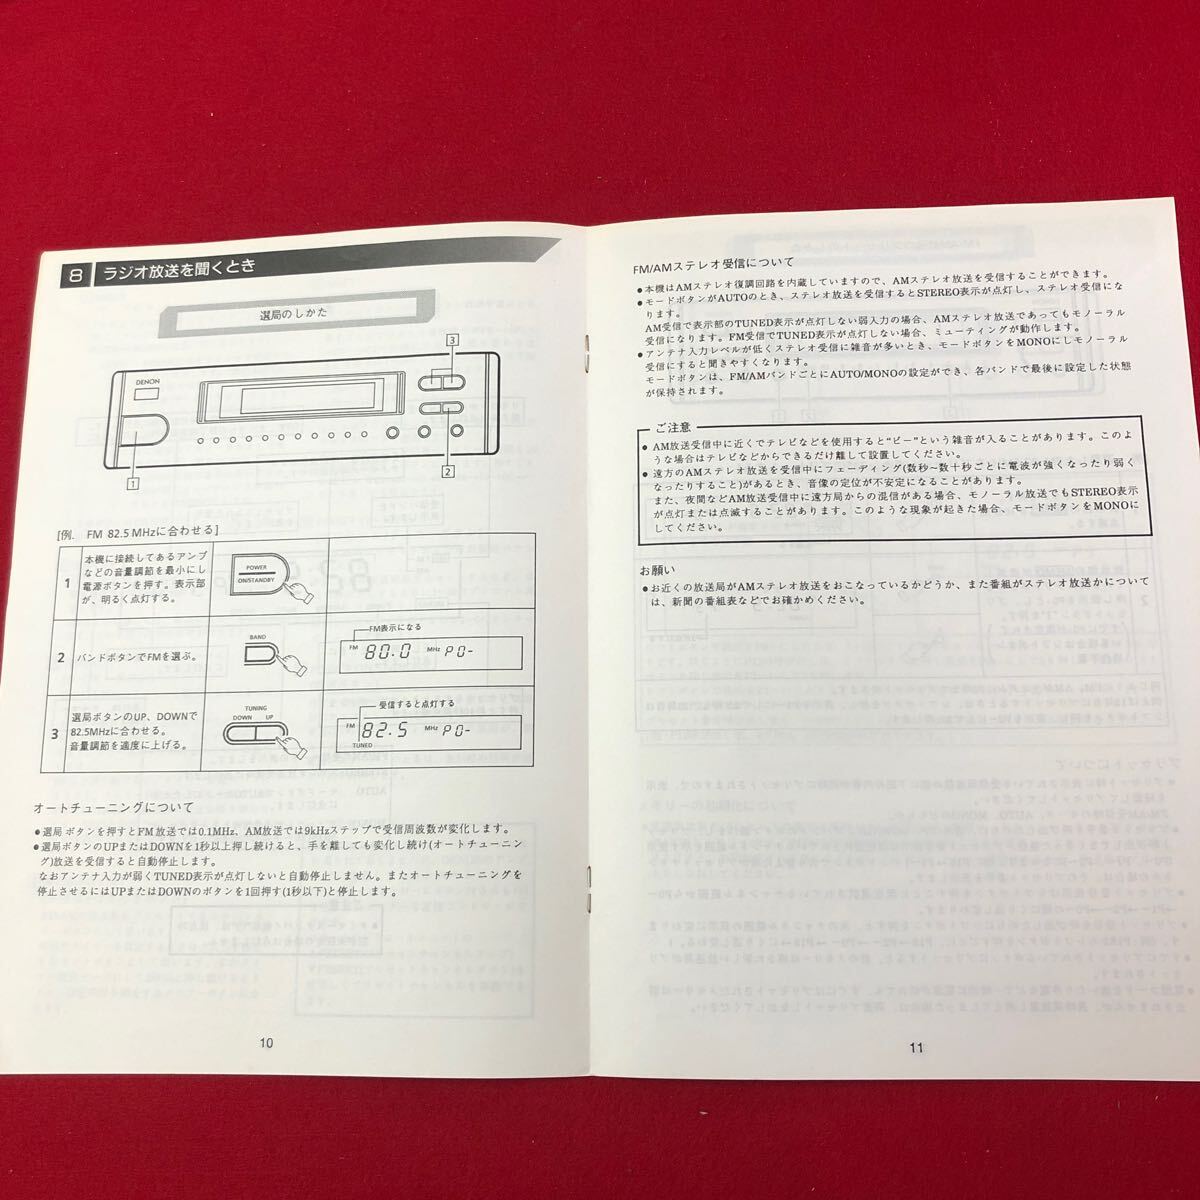 8 ラジオ放送を聞くとき
選局のしかた
DENON
3
1
2
[例. FM 82.5 MHzに合わせる]
1
本機に接続してあるアンプ
などの音量調節を最小にし
電源ボタンを押す。表示部
が、明るく点灯する。
POWER
ON/STANDBY
2
バンドボタンでFMを選ぶ。
BAND
FM表示になる
FM 80.0 MHz P0-
3
選局ボタンのUP、DOWNで
82.5MHzに合わせる。
音量調節を適度に上げる。
TUNING
DOWN UP
受信すると点灯する
FM 82.5 MHz P0-
TUNED
オートチューニングについて
●選局ボタンを押すとFM放送では0.1MHz、AM放送では9kHzステップで受信周波数が変化します。
●選局ボタンのUPまたはDOWNを1秒以上押し続けると、手を離しても変化し続け(オートチューニン
グ)放送を受信すると自動停止します。
なおアンテナ入力が弱くTUNED表示が点灯しないと自動停止しません。またオートチューニングを
停止させるにはUPまたはDOWNのボタンを1回押す(1秒以下)と停止します。
10
FM/AMステレオ受信について
●本機はAMステレオ復調回路を内蔵していますので、AMステレオ放送を受信することができます。
●モードボタンがAUTOのとき、ステレオ放送を受信するとSTEREO表示が点灯し、ステレオ受信にな
ります。
AM受信で表示部のTUNED表示が点灯しない弱入力の場合、AMステレオ放送であってもモノーラル
受信になります。FM受信でTUNED表示が点灯しない場合、ミューティングが動作します。
●アンテナ入力レベルが低くステレオ受信に雑音が多いとき、モードボタンをMONOにしモノーラル
受信にすると聞きやすくなります。
モードボタンは、FM/AMバンドごとにAUTO/MONOの設定ができ、各バンドで最後に設定した状態
が保持されます。
ご注意
●AM放送受信中に近くでテレビなどを使用すると“ビー”という雑音が入ることがあります。このよ
うな場合はテレビなどからできるだけ離して設置してください。
●遠方のAMステレオ放送を受信中にフェーディング(数秒~数十秒ごとに電波が強くなったり弱く
なったりすること)があるとき、音像の定位が不安定になることがあります。
また、夜間などAM放送受信中に遠方局からの混信がある場合、モノーラル放送でもSTEREO表示
が点灯または点滅することがあります。このような現象が起きた場合、モードボタンをMONOに
してください。
お願い
●お近くの放送局がAMステレオ放送をおこなっているかどうか、また番組がステレオ放送かについて
は、新聞の番組表などでお確かめください。
11